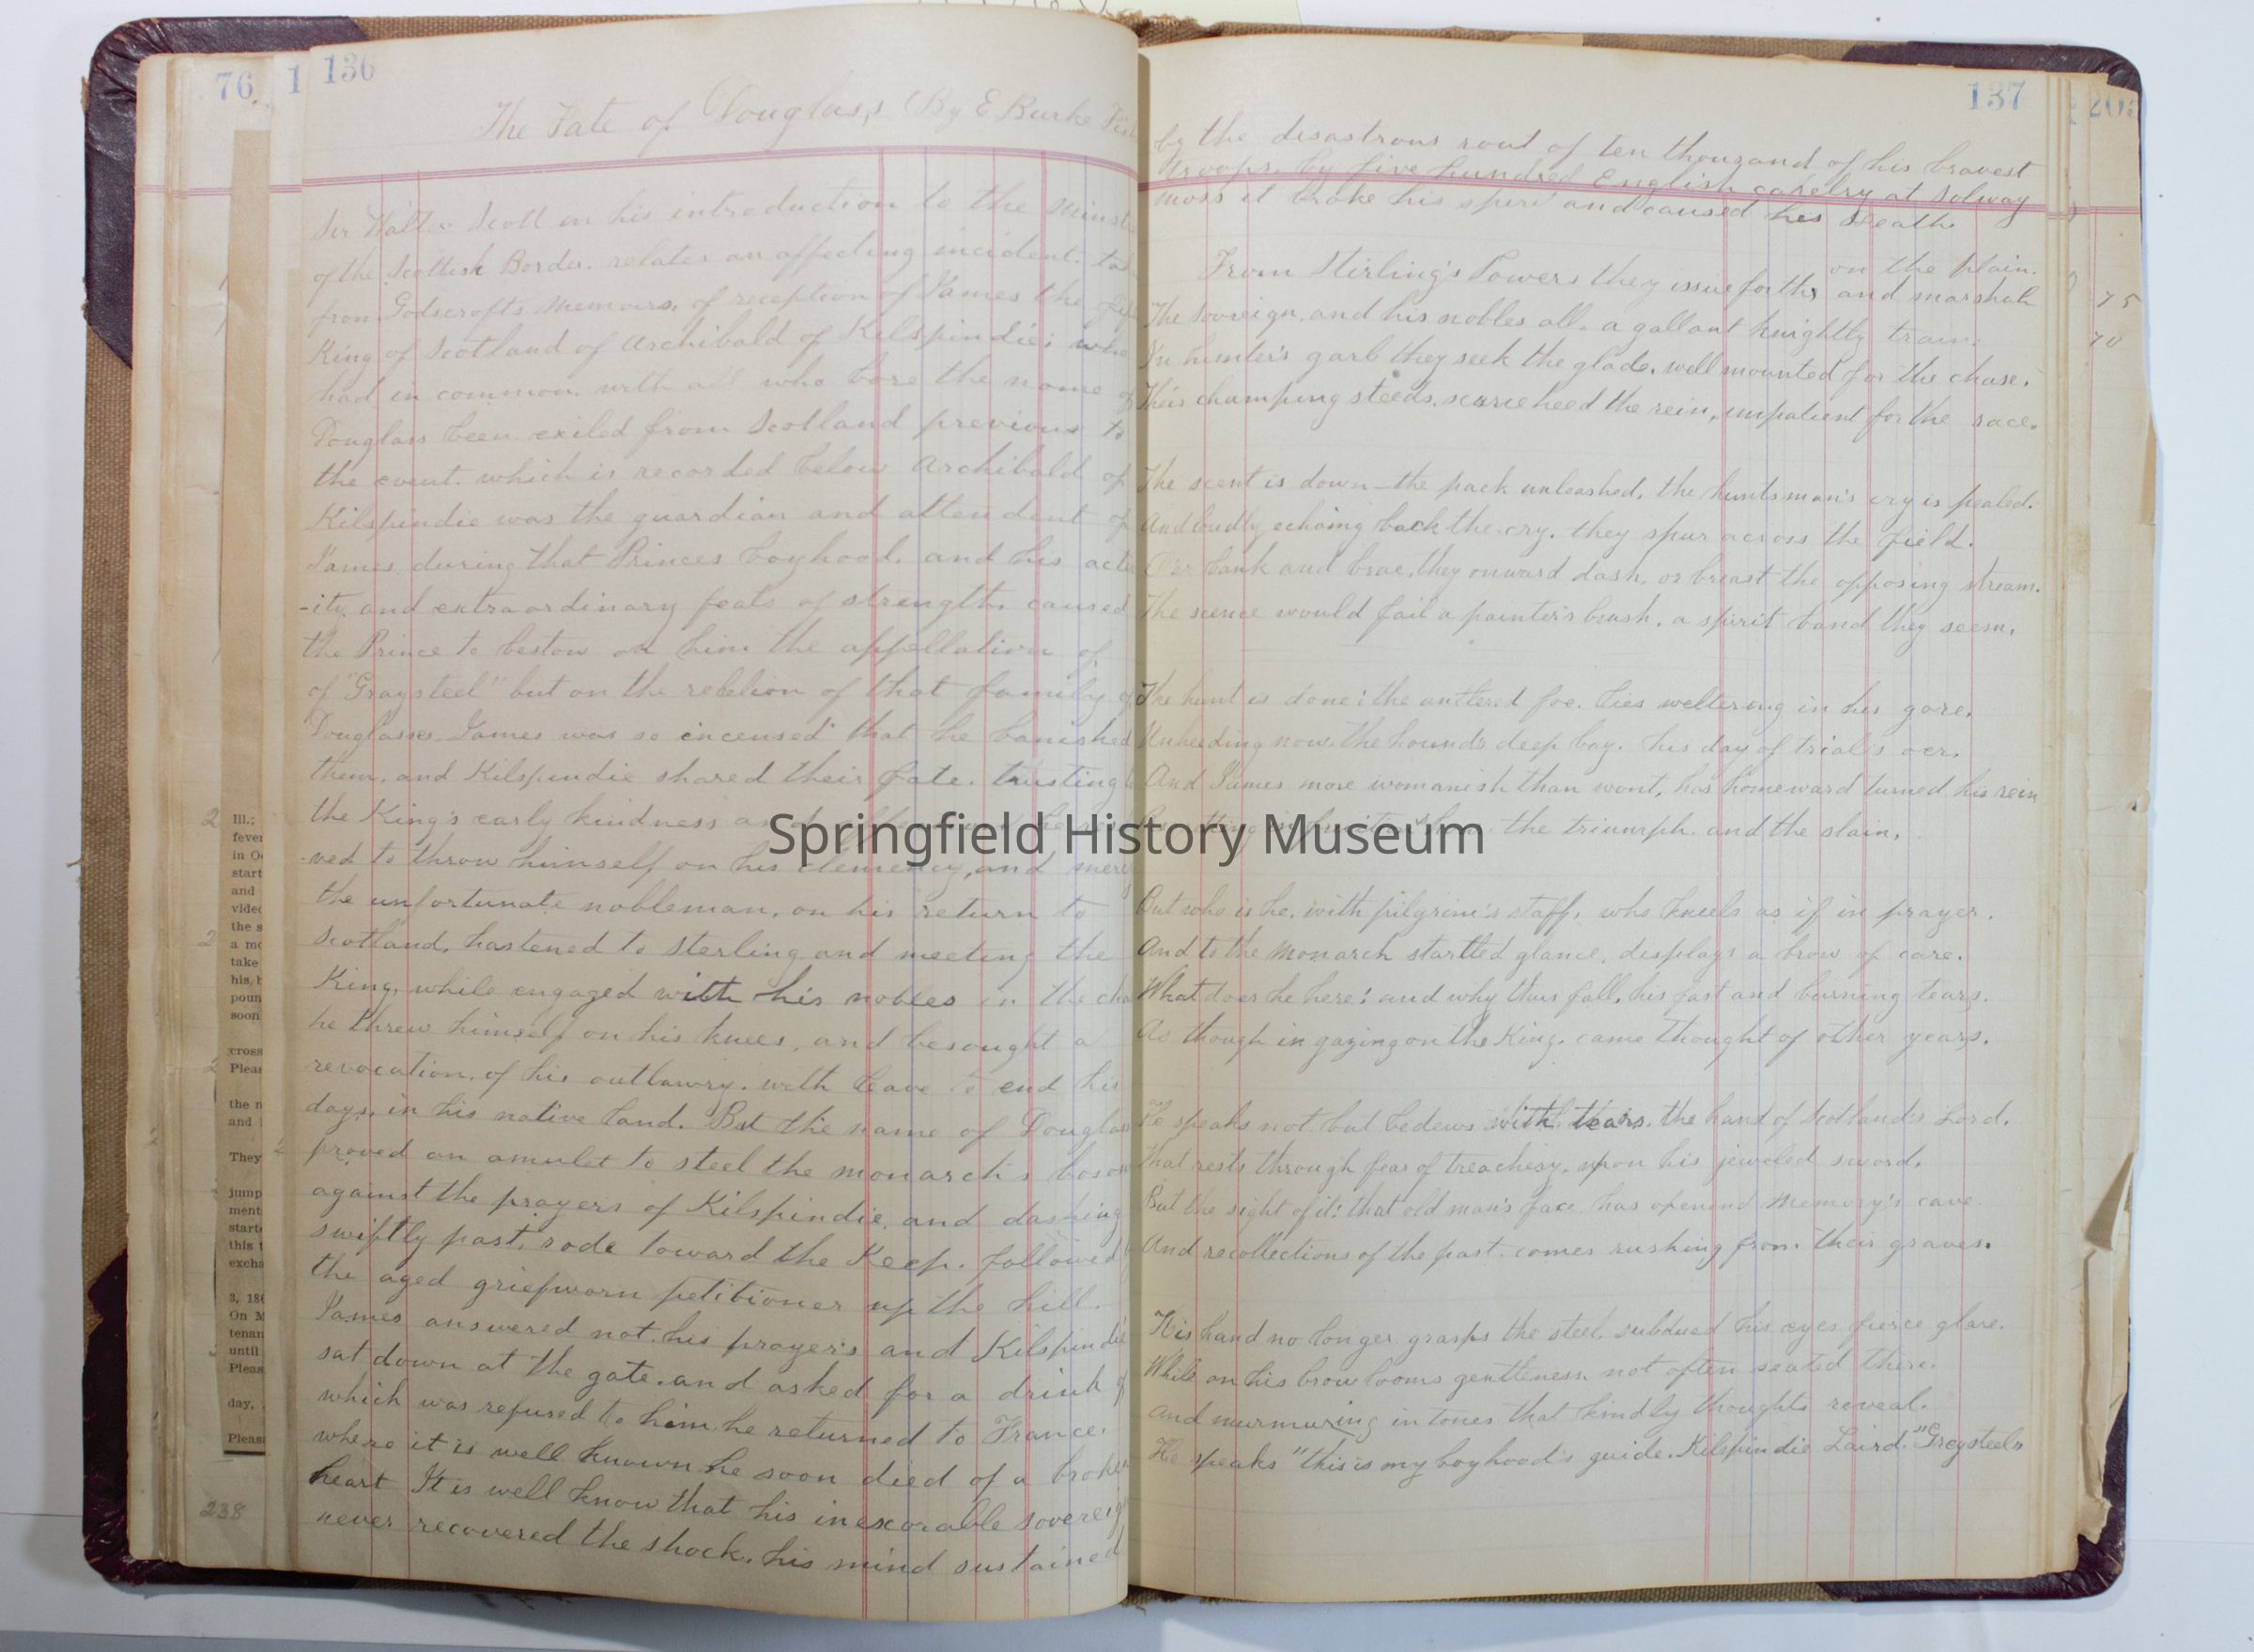 76
1
136
The Fate of Douglass (By E Burke
Sir Walter Scott in his introduction to the
of the Scottish Border. relates an affecting incident.
from Godscrofts Memoirs, of reception of James the
King of Scotland of Archibald of Kilspindie; who
had in common with all who bore the name of
Douglass been exiled from Scotland previous to
the event. which is recorded below Archibald of
Kilspindie was the guardian and attendent of
James during that Princes boyhood. and his
-ity. and extraordinary feats of strength. caused
the Prince to bestow on him the appellation of
of "Graysteel" but on the rebelion of that family of
Douglasses James was so incensed that he banished
them. and Kilspindie shared their fate. trusting
the King's early kindness
-ved to throw himself on his clemency, and
the unfortunate nobleman. on his return to
Scotland, hastened to sterling and meeting the
King, while engaged with his nobles in the
he threw himself on his knees, and besought a
revocation. of his outlawry. with leave to end his
days. in his native land. But the name of Douglass
proved an amulet to steel the monarch's
against the prayers of Kilspindie. and dashing
swiftly past. rode toward the Keep. followed
the aged griefworn petitioner up the hill.
James answered not. his prayers and Kilspindie
sat down at the gate. and asked for a drink
which was refused to him. he returned to France.
where it is well known he soon died of a
heart It is well know that his inexorable
never recovered the shock. his mind sustained
137
by the disastrous rout of ten thousand of his bravest
troops. by five hundred English cavelry at Solway
moss it broke his and caused his Death.
on the plain.
From Stirling's Towers they issue forth, and marshals
The Sovreign. and his nobles all. a gallant knightly train.
In hunter's garb they seek the glade. well mounted for the chase.
Their champing steeds. scarce heed the rein, impatient for the race.
The scent is down - the pack unleashed, the huntsman's cry is pealed.
And loudly echoing back the cry. they spur across the field.
O'er bank and brae, they onward dash, or breast the opposing stream.
The scence would fail a painter's brush. a spirit band they seem.
The hunt is done: the antlered foe. lies weltering in his gore.
Unheeding now. the hound's deep bay. his day of trial's oer.
And James more womanish than wont, has homeward turned his rein
the triumph. and the slain.
But who is he, with pilgrim's staff, who kneels as if in prayer.
And to the Monarch startled glance, displays a brow of care.
What does he here! and why thus fall, his fast and burning tears.
As though in gazing on the King. came thought of other years.
He speaks not. but bedews with tears. the hand of Scotland's Lord.
That rests through fear of treachery. upon his jeweled sword.
But the sight of it! that old man's face has opened Memory's cave
And recollections of the past. comes rushing from their graves.
His hand no longer grasps the steel. subdued his eyes fierce glare.
While on his brow looms gentleness not often seated there.
And murmuring in tones that kindly thoughts reveal.
He speaks "this is my boyhood's guide. Kilspindie Laird. "Greysteel"
75
70
2
Ill.;
fever
start
and
the s
2
take
his
poun
soon
cross
Pleas
the n
and
They
jump
ment
start
this t
excha
On M
tenan
until
Pleas
day,
Pleas
238
Springfield History Museum